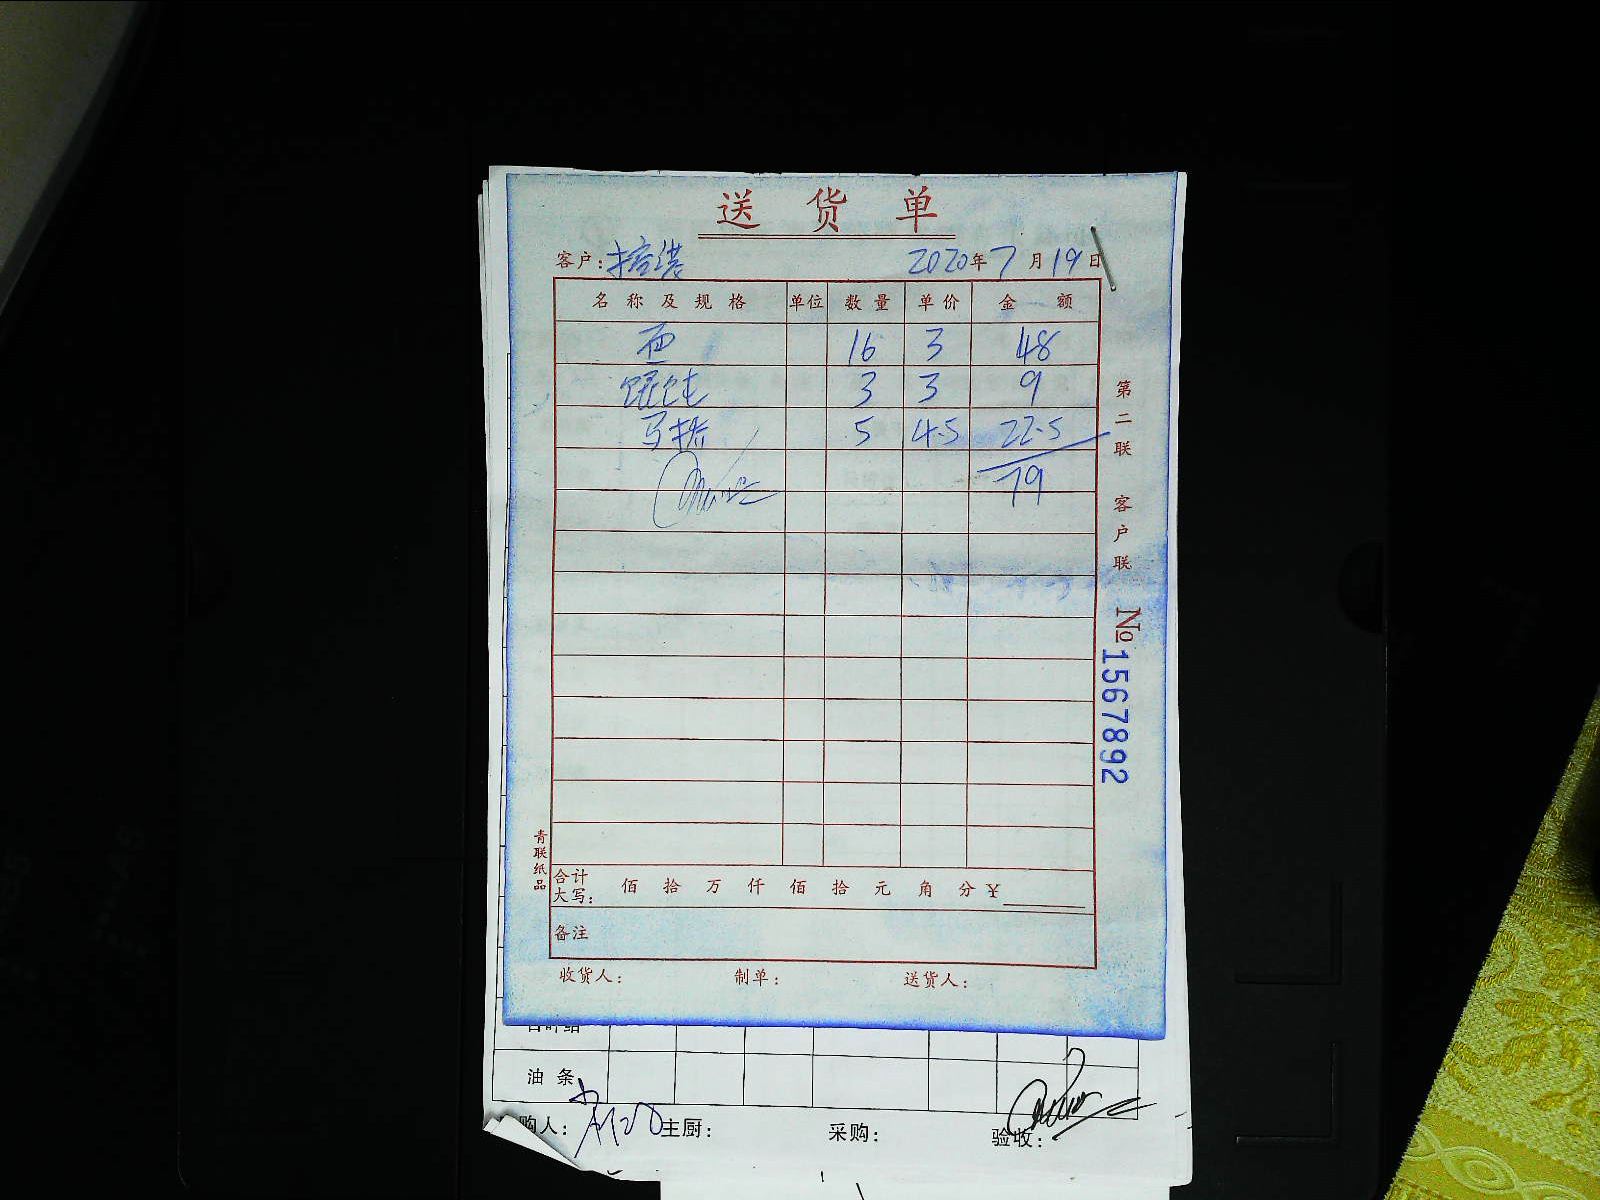 送货单
客户: 2020年7月19日
名称及规格 单位 数量 单价 金额
面 16 3 48
馄饨 3 3 9
5 4.5 22.5
79
第二联 客户联
№1567892
青联纸品
合计大写: 佰 拾 万 仟 佰 拾 元 角 分 ¥
备注
收货人: 制单: 送货人:
油条
购人: 主厨: 采购: 验收: